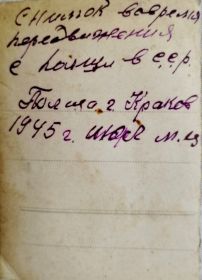 Снимок вовремя
передвижения
с
в с.с.р.
Польша г. Краков
1945 г. июль м-ц